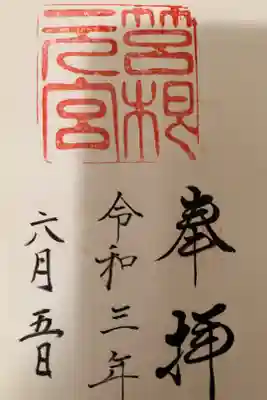 箱根
元宮
奉拝
令和三年
六月五日